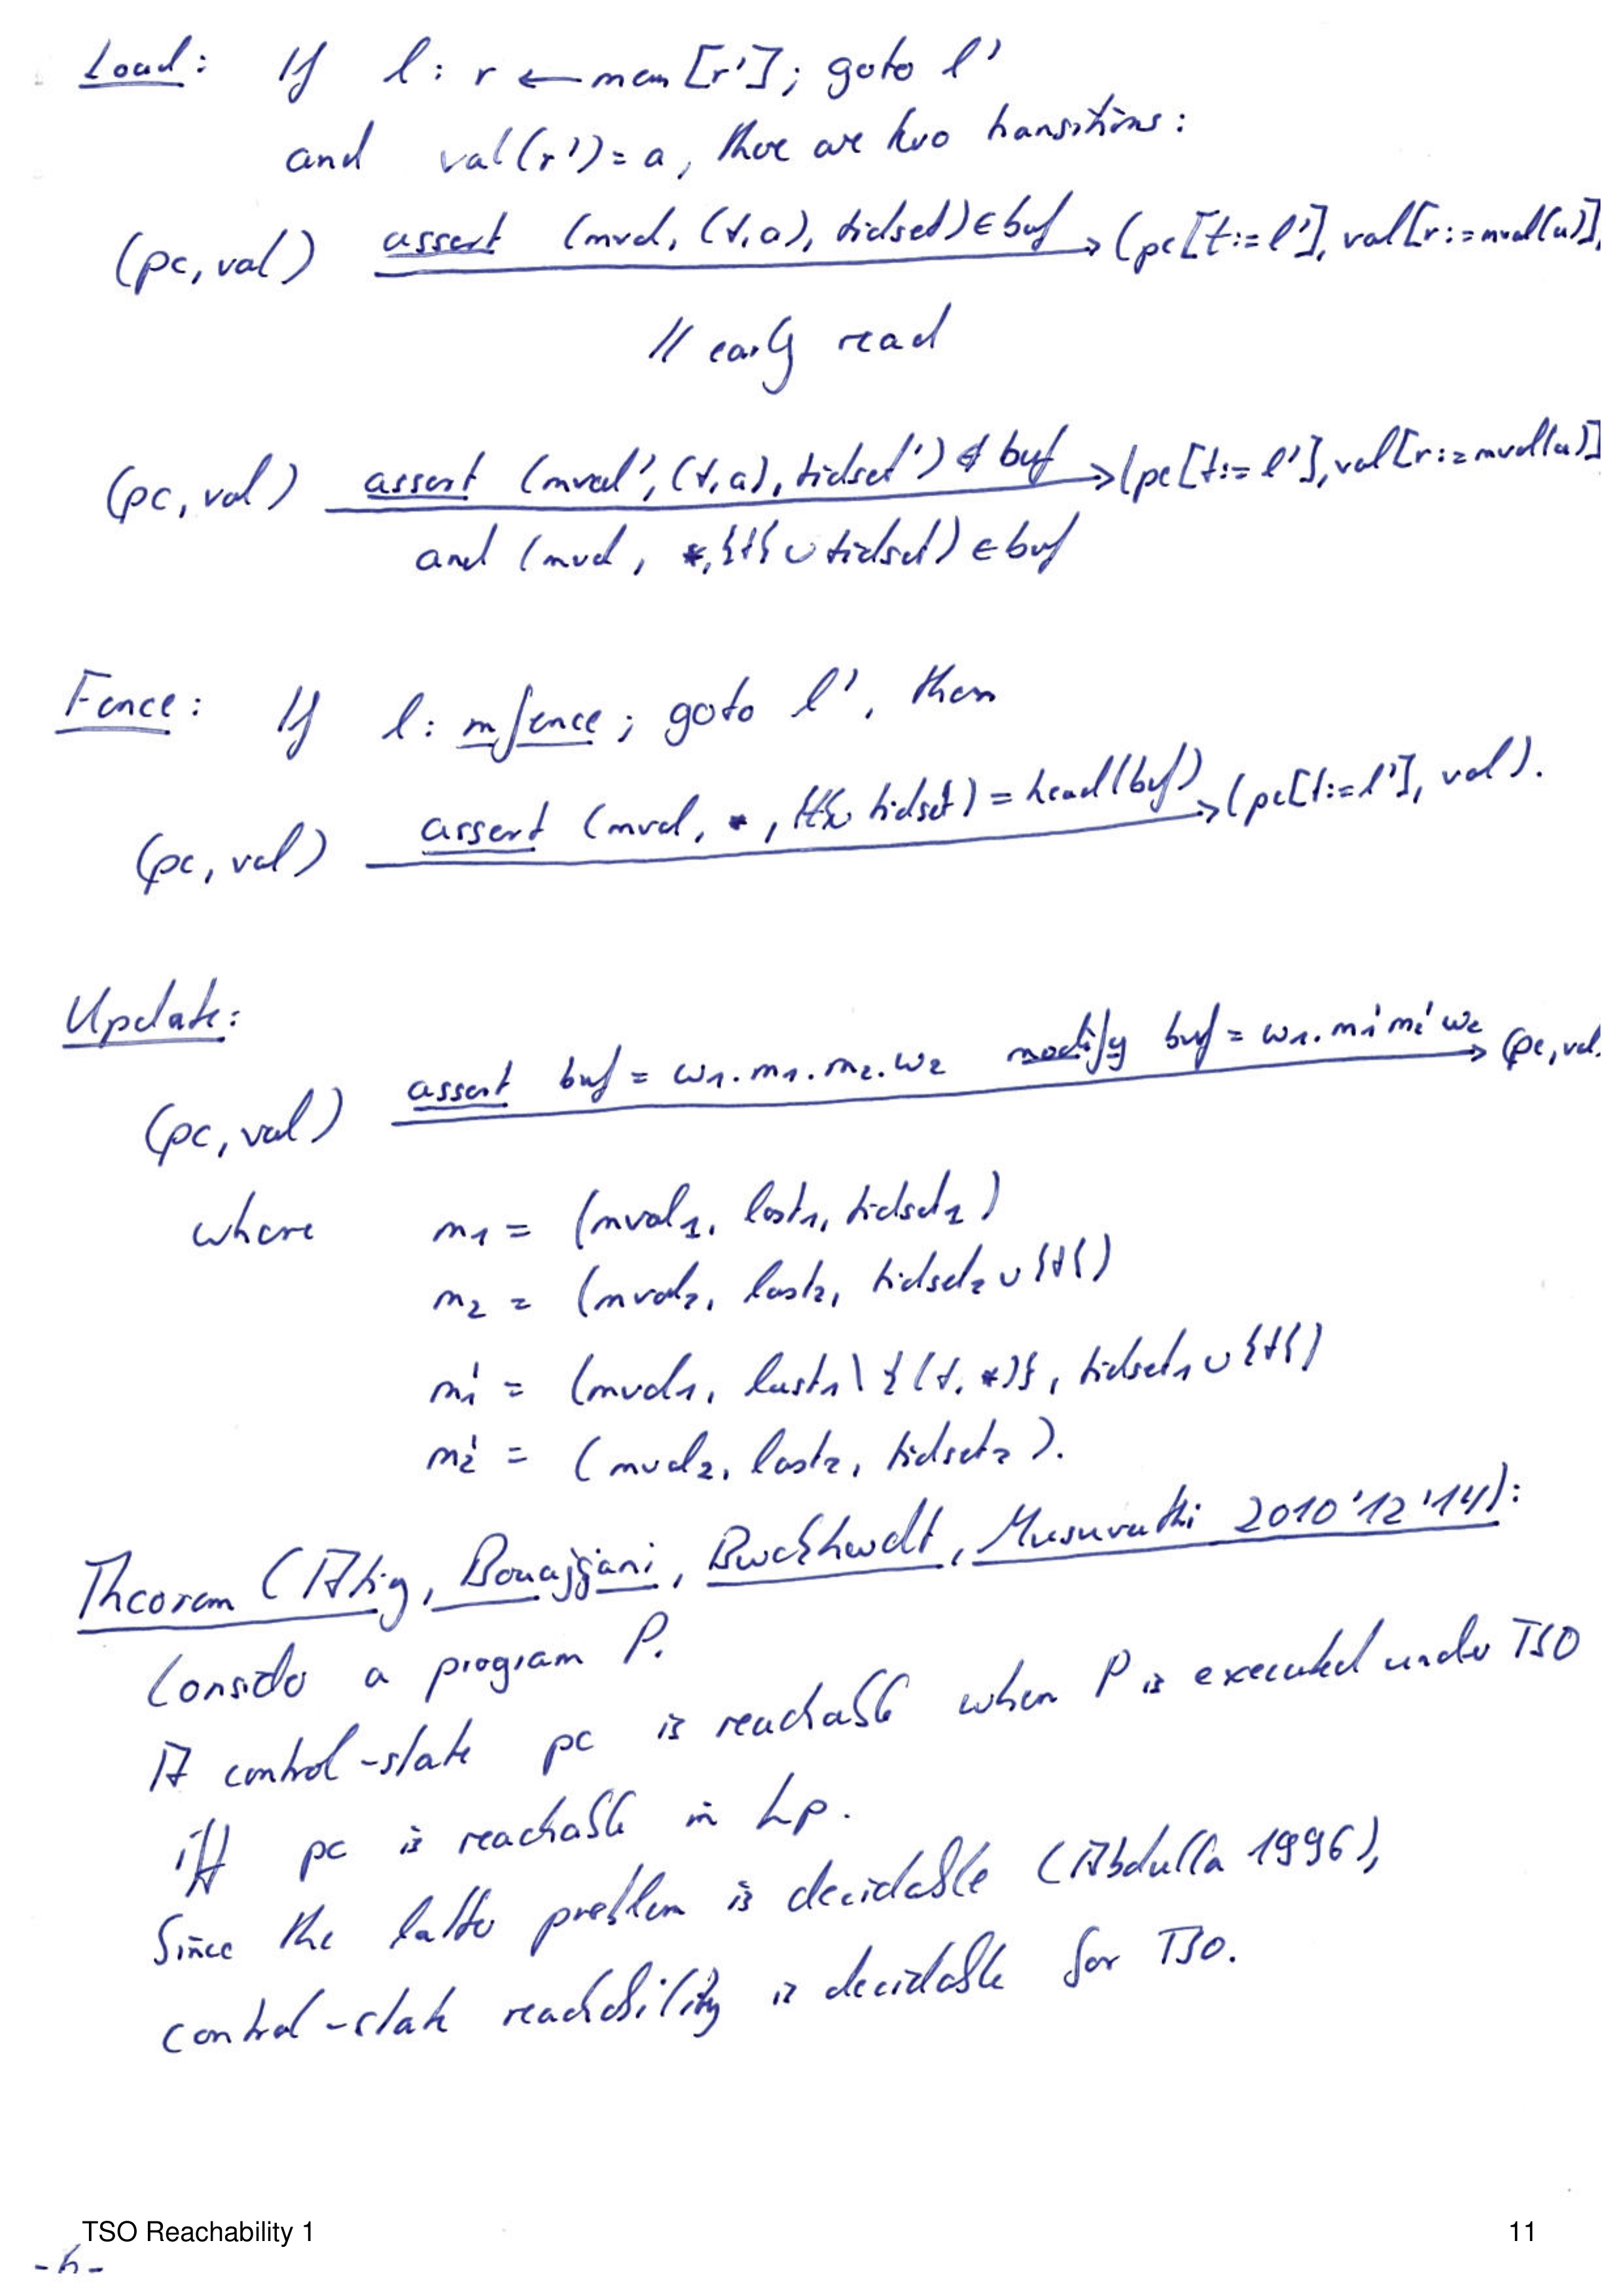 Load: If l: r ← mem[r']; goto l'
and val(r') = a, there are two transitions:
(pc, val) assert (mval, (t,a), tidset) ∈ buf → (pc[t:=l'], val[r:=mval(a)],
// early read
(pc, val) assert (mval', (t,a), tidset') ∉ buf → (pc[t:=l'], val[r:=mval(a)]
and (mval, *, {t} ∪ tidset) ∈ buf
Fence: If l: mfence; goto l', then
(pc, val) assert (mval, *, {t} ∪ tidset) = head(buf) → (pc[t:=l'], val).
Update:
(pc, val) assert buf = w1.m1.m2.w2 modify buf = w1.m1' m2' w2 → (pc, val
where m1 = (mval1, last1, tidset1)
m2 = (mval2, last2, tidset2 ∪ {t})
m1' = (mval1, last1 \ {(t,*)}, tidset1 ∪ {t})
m2' = (mval2, last2, tidset2).
Theorem (Atig, Bouajjani, Burckhardt, Musuvathi 2010 '12 '14):
Consider a program P.
A control-state pc is reachable when P is executed under TSO
iff pc is reachable in Lp.
Since the latter problem is decidable (Abdulla 1996),
control-state reachability is decidable for TSO.
TSO Reachability 1 11
-6-